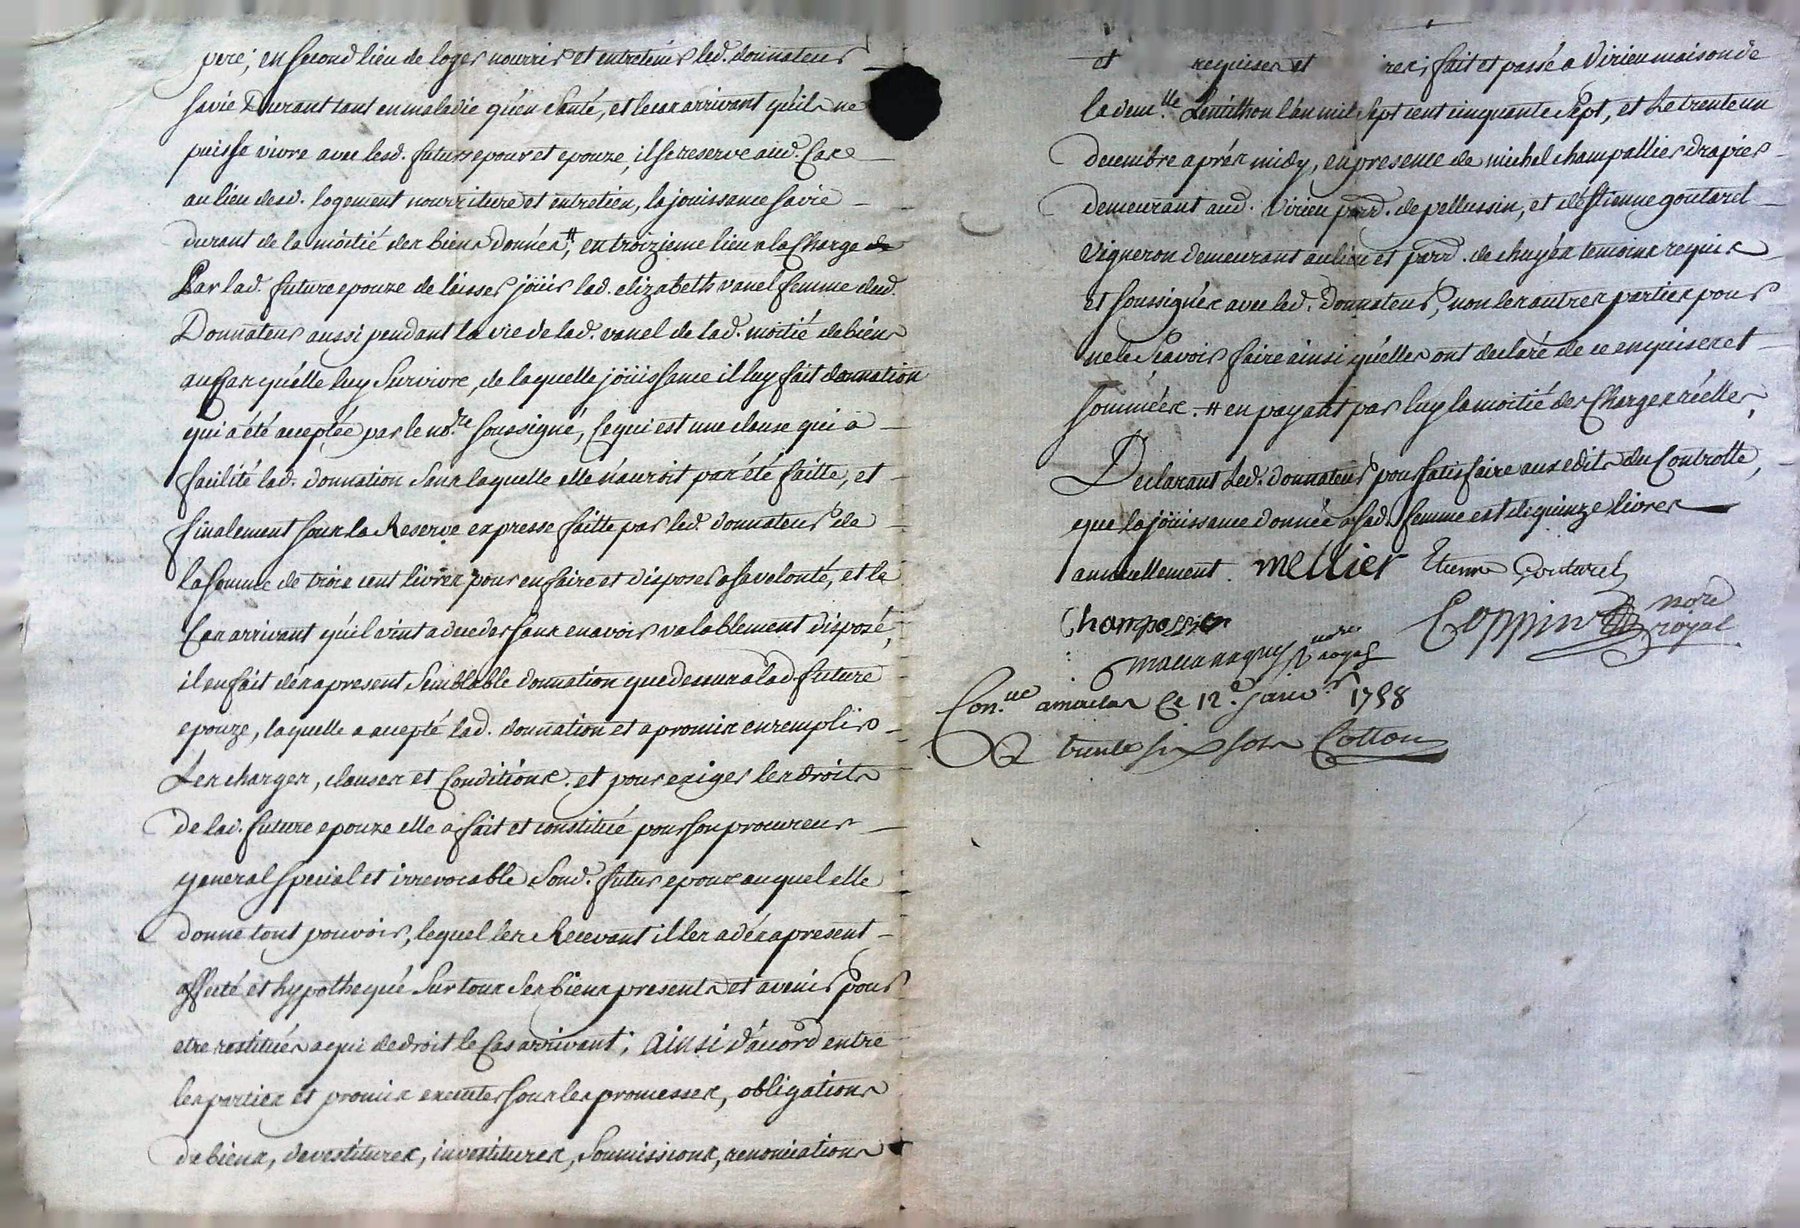 pere, en second lieu de loger nourrir et entretenir led. donnateur
sa vie Durant tant en maladie qu'en santé, et le cas arrivant qu'il ne
puisse vivre avec lesd. futurs epoux et epouze, il se reserve aud. Cas
au lieu desd. logement nourriture et entretien, la jouissance sa vie
durant de la moitié des biens donnés #, en troizieme lieu a la Charge
Par lad. future epouze de laisser joüir lad. elizabeth vanel femme dud.
Donnateur aussi pendant la vie de lad. vanel de lad. moitié de biens
au cas qu'elle luy survive, de laquelle joüissance il luy fait donnation
qui a été acceptée par le no.re soussigné, ce qui est une clause qui a
facilité lad. donnation sans laquelle elle n'auroit pas été faitte, et
finalement sous la Reserve expresse faitte par led. donnateur de
la somme de trois cent livres pour en faire et disposer a sa volonté, et le
Cas arrivant qu'il vint a deceder sans en avoir valablement disposé,
il en fait dés a present semblable donnation que dessus a lad. future
epouze, laquelle a accepté lad. donnation et a promis en remplir
Les charges, clauses et Conditions. et pour exiger les droits
de lad. future epouze elle a fait et constitué pour son procureur
general special et irrevocable sond. futur epoux auquel elle
donne tout pouvoir, lequel les Recevant il les a dés a present
affecté et hypothequé sur tous ses biens presents et avenir pour
etre restitués a qui de droit le Cas arrivant; Ainsi d'acord entre
les parties et promis executer sous les promesses, obligations
de biens, devestitures, investitures, soumissions, renonciations
et requises et fait et passé a Virieu maison de
la dem.lle Lentilhon l'an mil sept cent cinquante sept, et le trente un
decembre aprés midy, en presence de michel champallier drapier
demeurant aud. Virieu parr. de pellussin, et d'Estienne goutarel
Vigneron demeurant au lieu et parr. de chuyés temoins requis
et soussignés avec led. donnateur, non les autres parties pour
ne le sçavoir faire ainsi qu'elles ont declaré de ce enquises et
sommées. # en payant par luy la moitié des Charges réelles,
Declarant led. donnateur pour satisfaire aux edits du Controlle,
que la joüissance donnée a sad. femme est de quinze livres
annuellement. mellier Etienne Goutarel
Champallier Coppin no.re royal
no.re royal
Con.ué a le 12.e janv.r 1758
R trente six sols Cotton